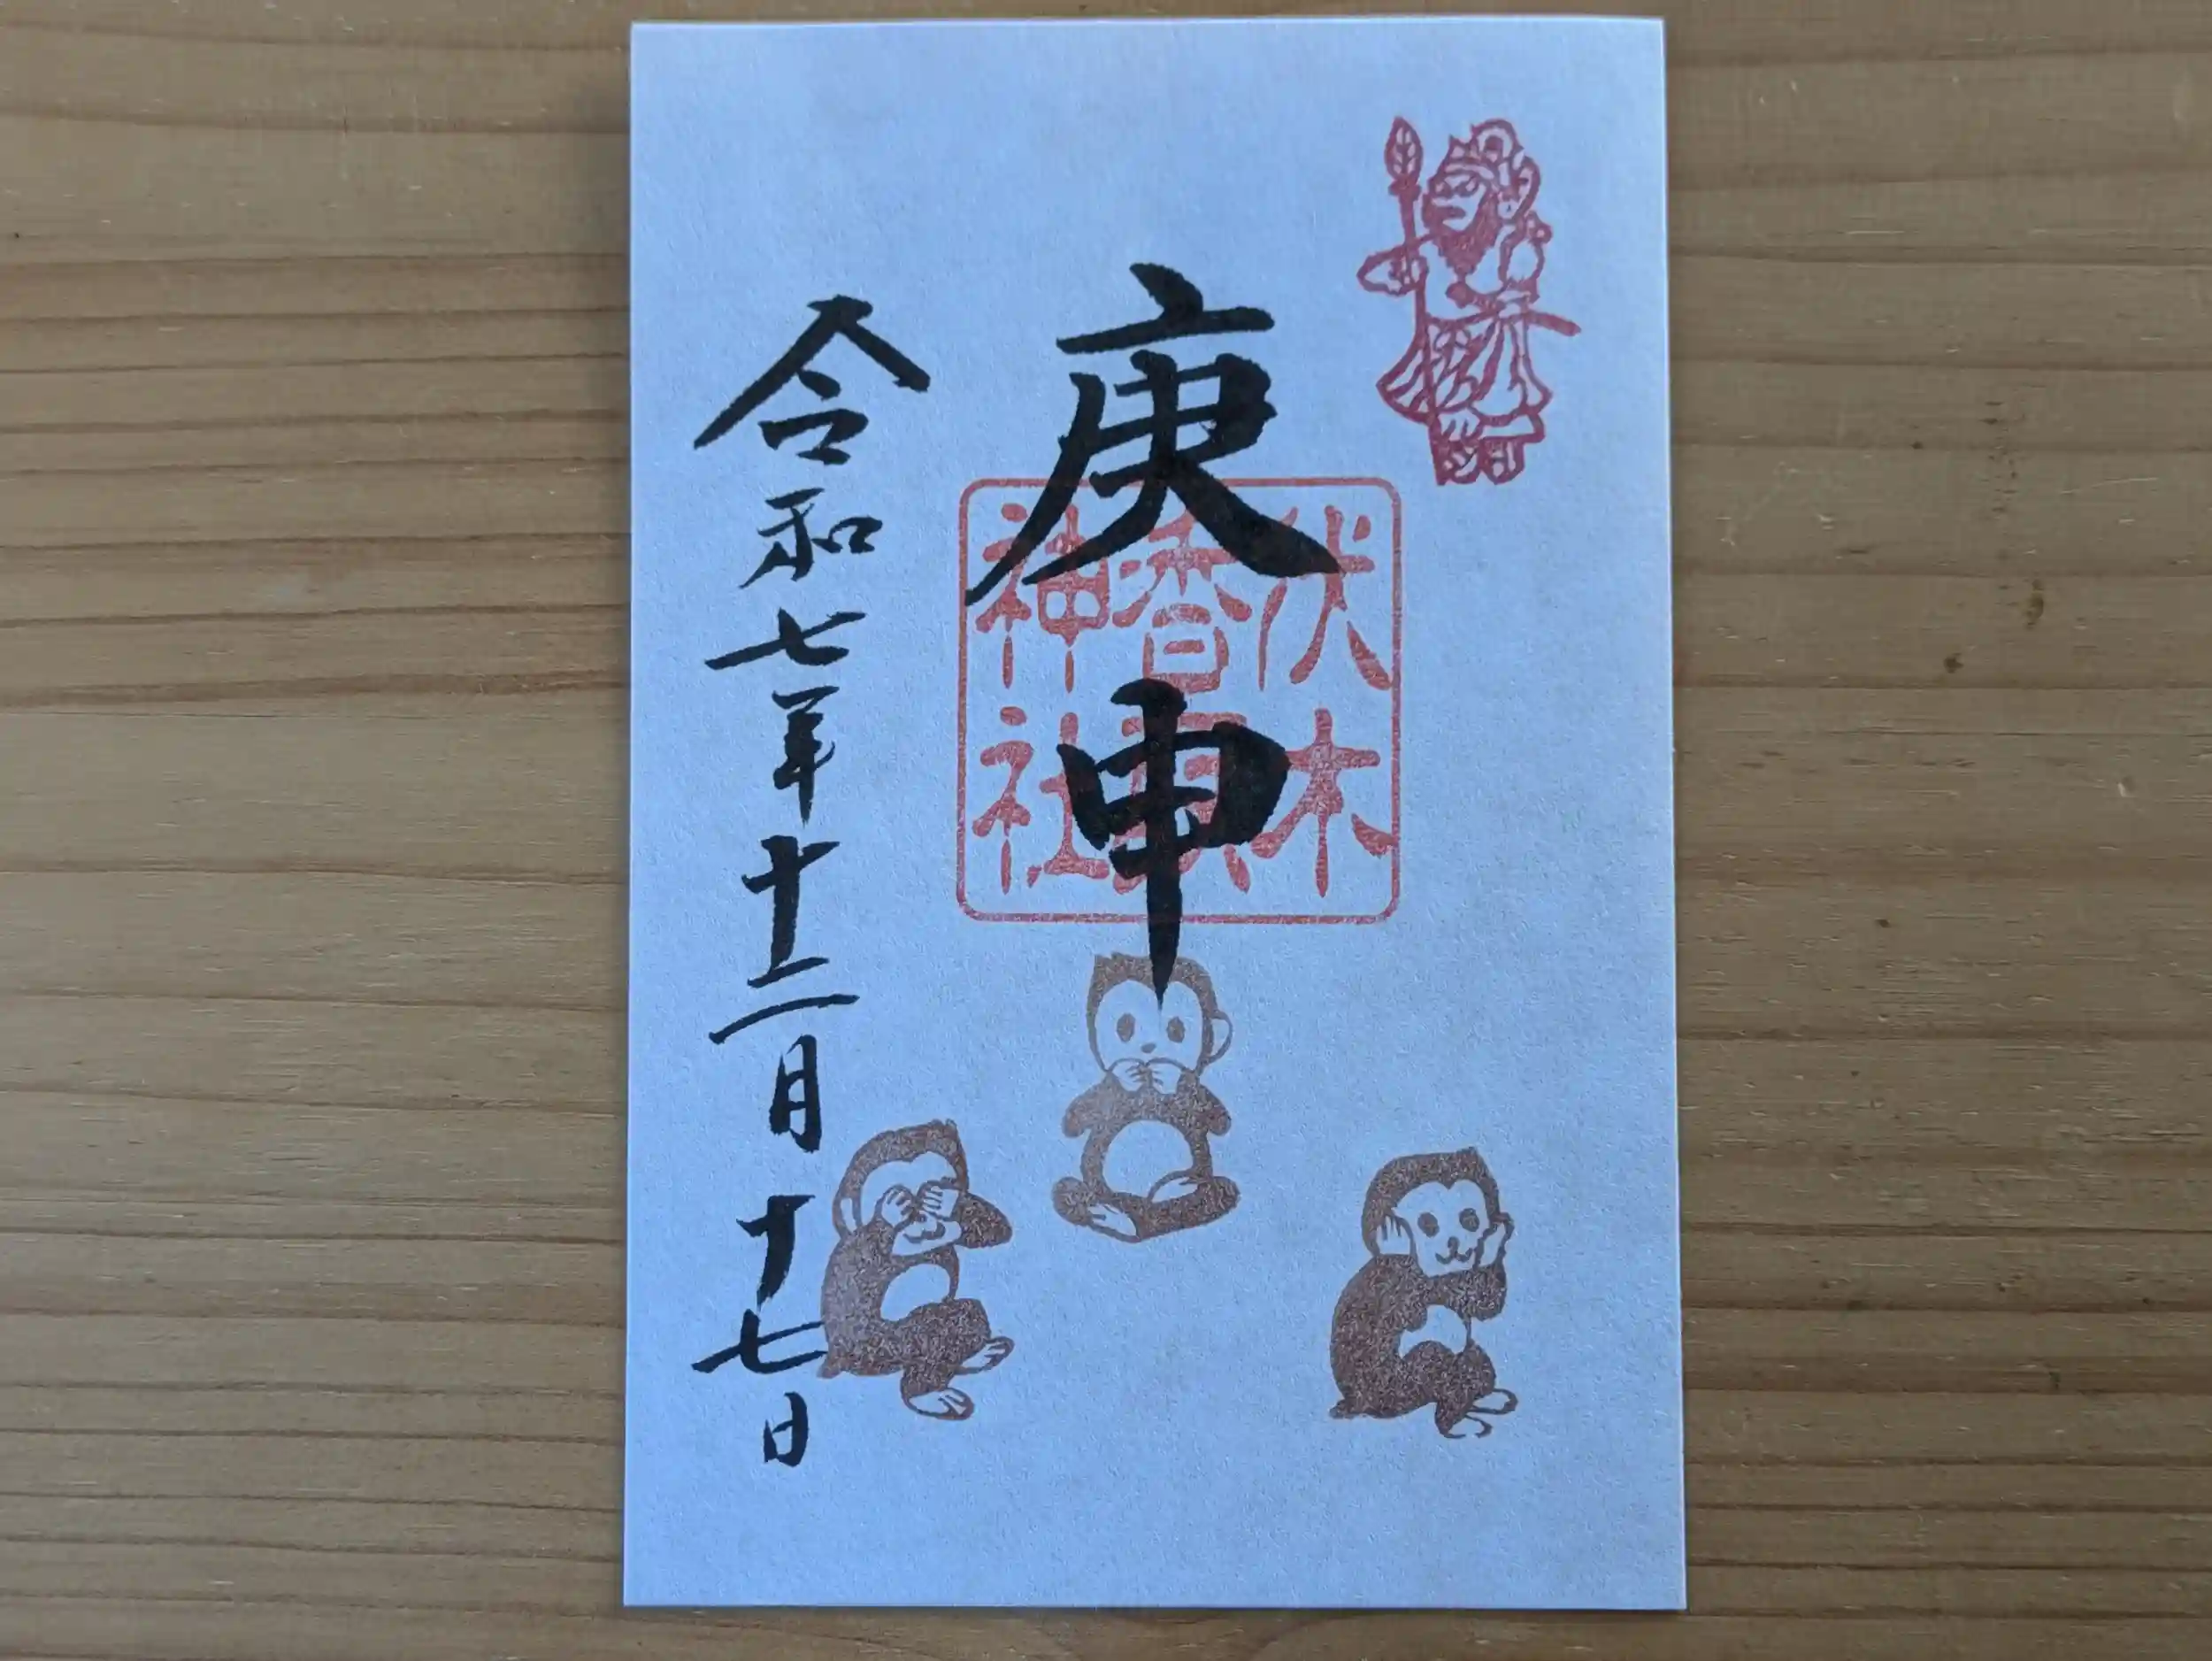 庚申
伏木
香取
神社
令和七年十二月十七日